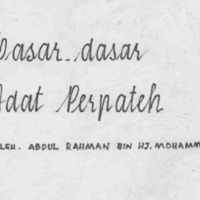 Dasar-dasar
Adat Perpateh
OLEH. ABDUL RAHMAN BIN HJ. MOHAMM